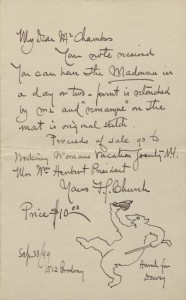 My dear Mr Chambers
Your note received
You can have the Madonna in
a day or two - print is retouched
by me and "remarque" on the
mat is original sketch.
Proceeds of sale go to
Working Womans Vacation Society NY.
Mrs Wm Herbert President
Yours F.S. Church
Price $10.00
Sep 30/99
1512 Broadway
Hurrah for
Dewey